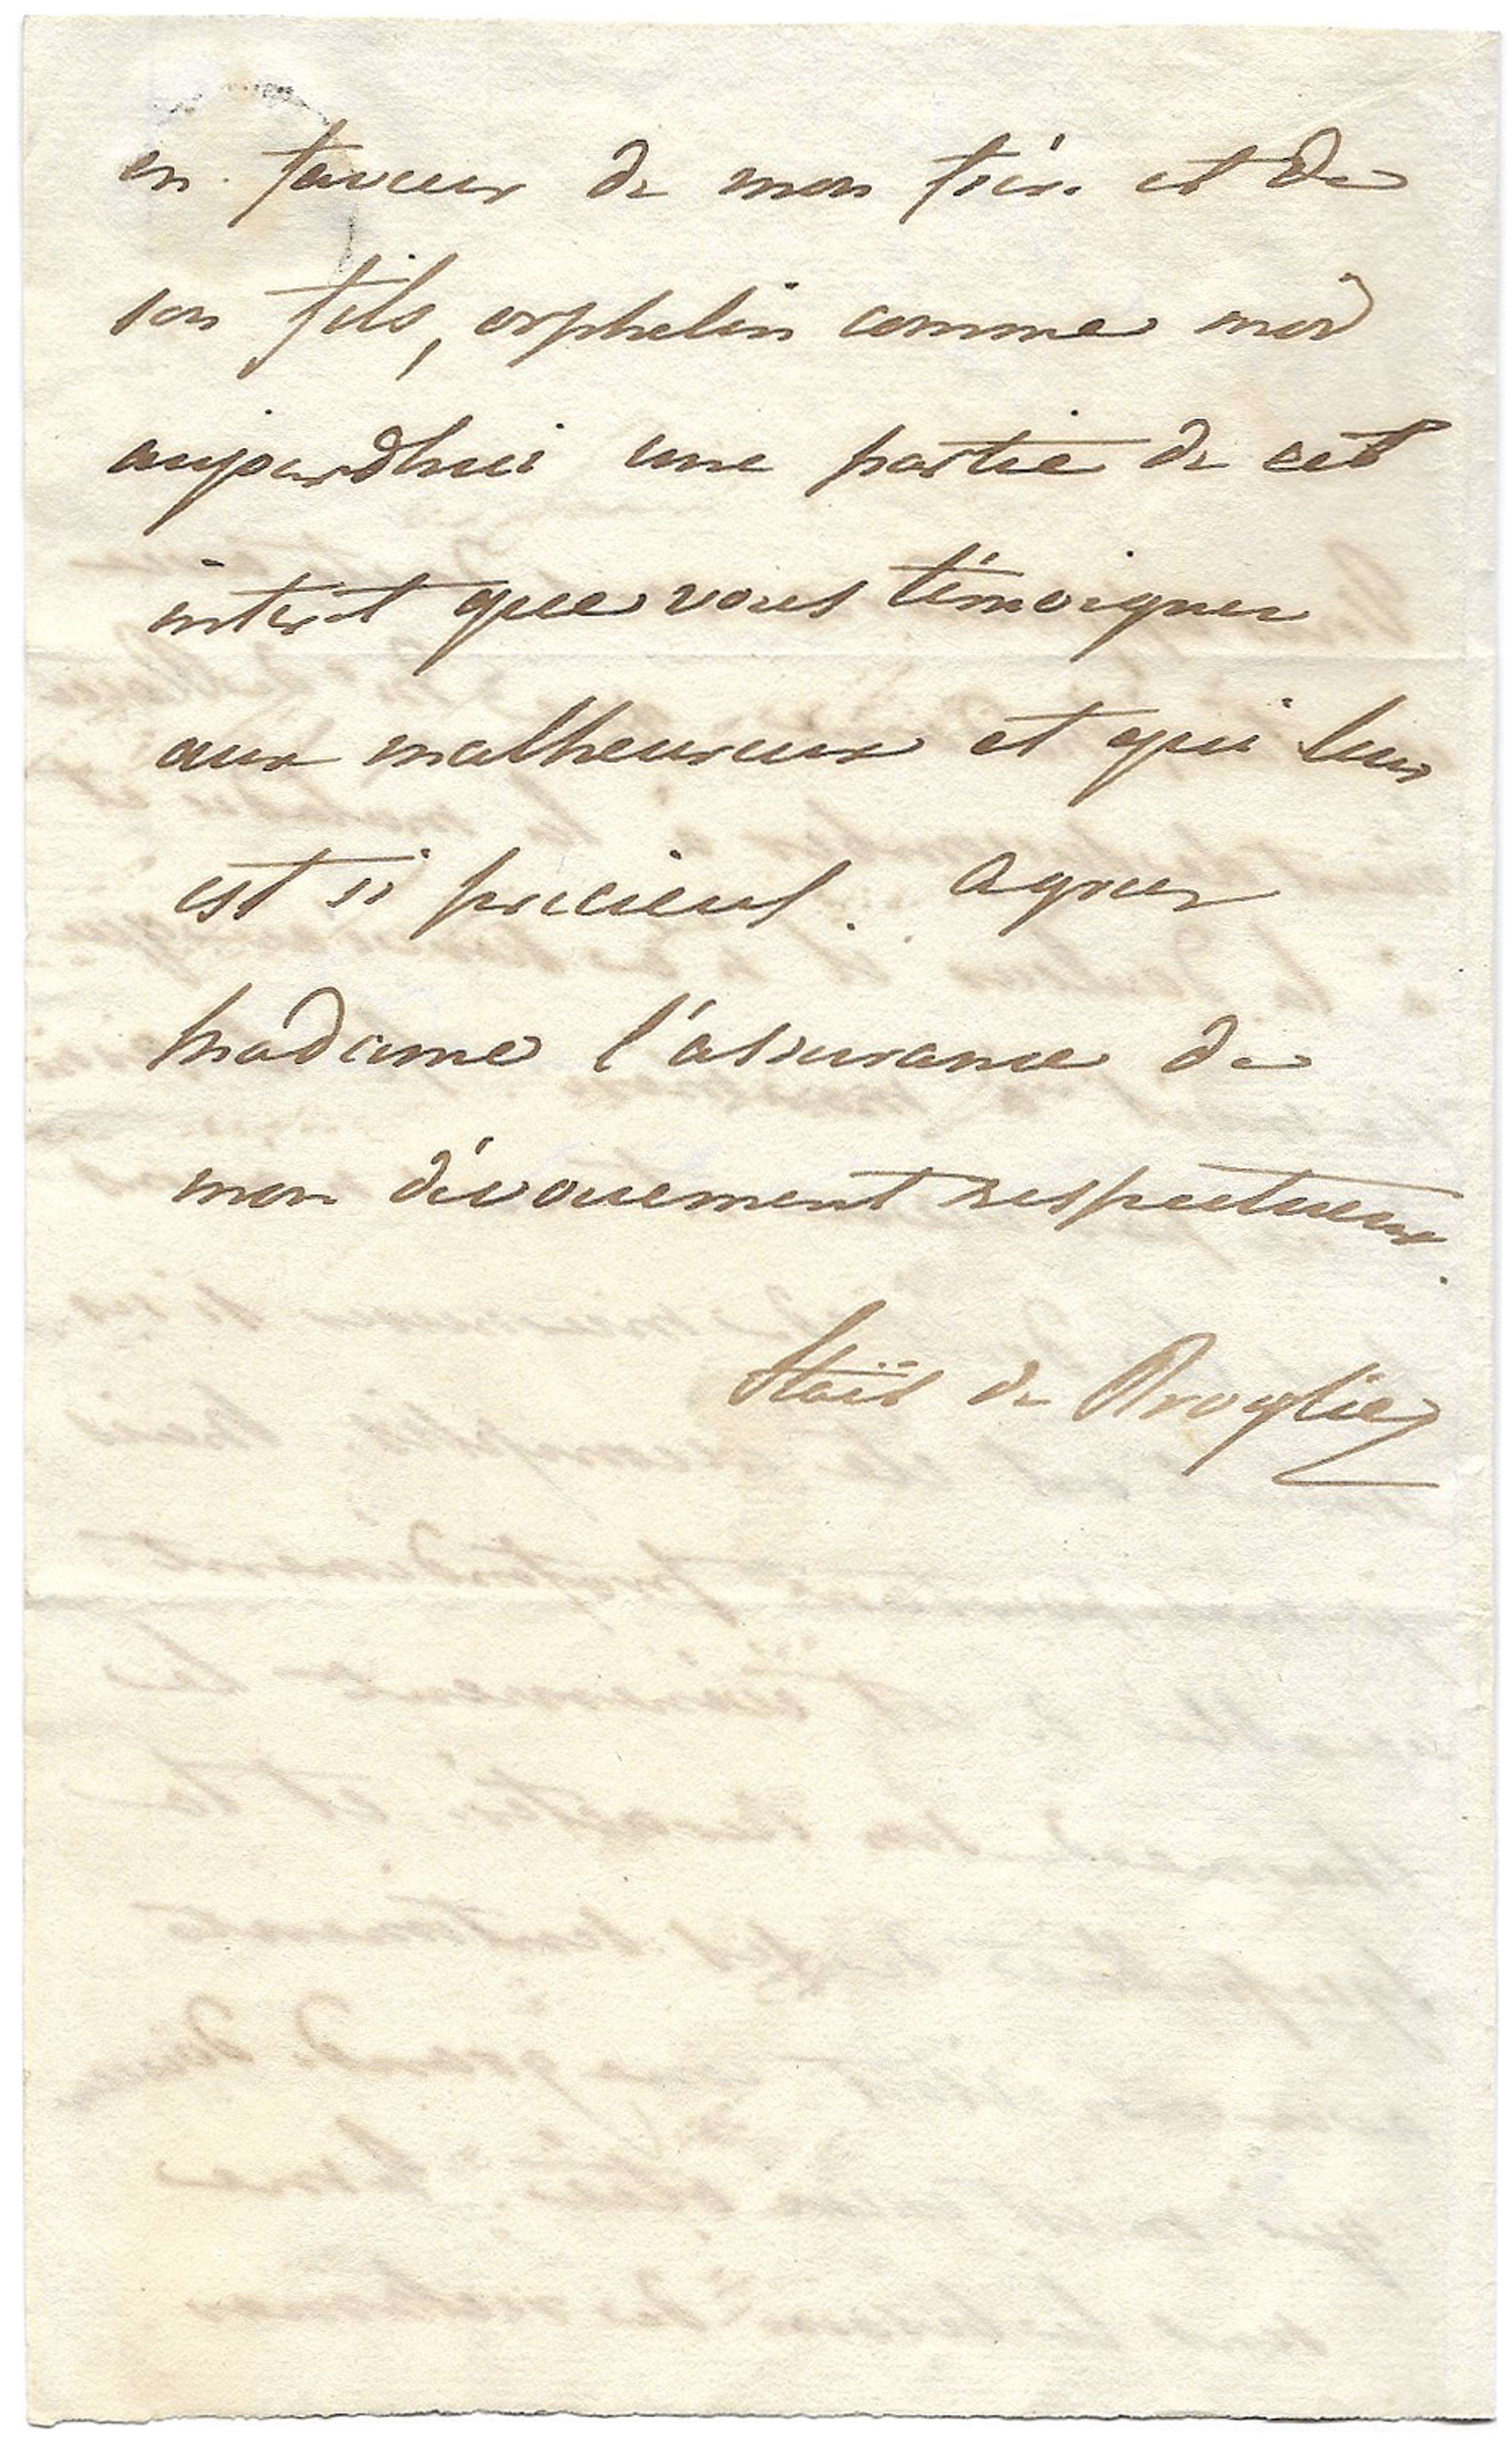 en faveur de mon frère et de
son fils, orphelin comme moi
aujourdhui une partie de cet
intérêt que vous témoignez
aux malheureux et qui leur
est si précieux. agréez
Madame l'assurance de
mon dévouement respectueux.
de Broglie